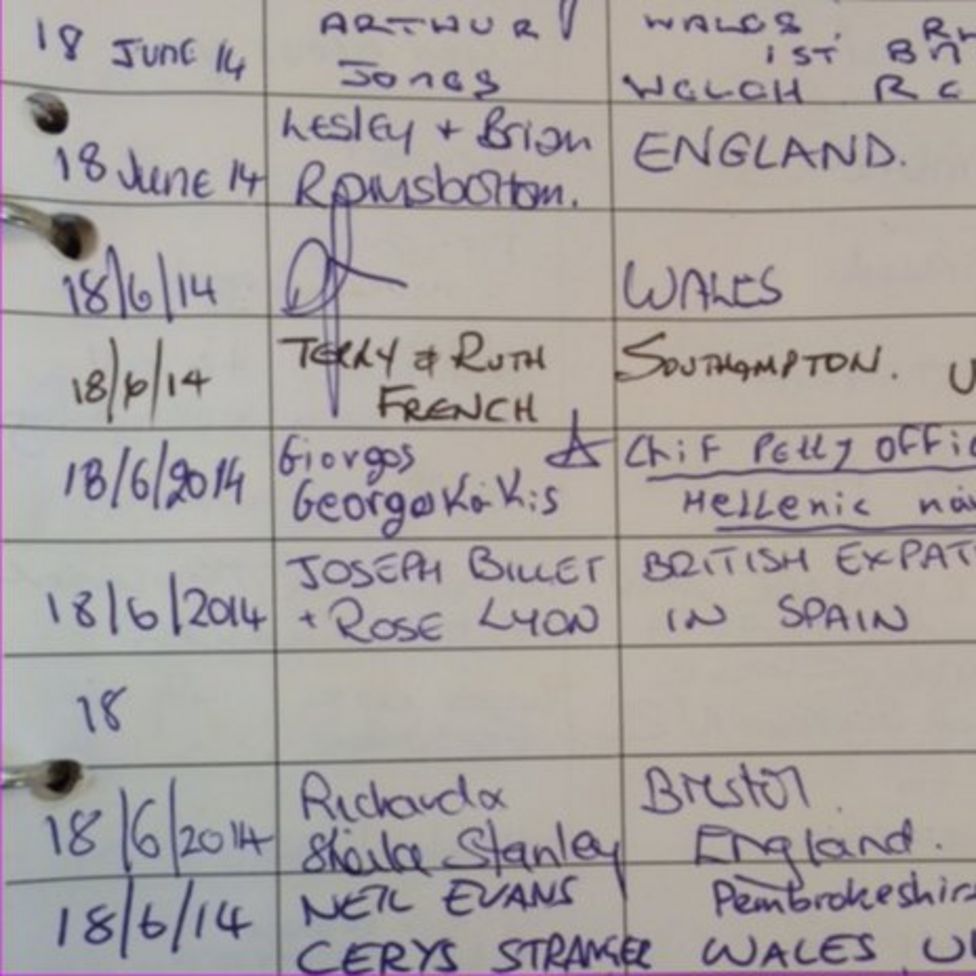 18 JUNE 14 ARTHUR WALES.
Jones 1ST BN
WELCH R
18 June 14 Lesley + Brian ENGLAND.
Ramsbottom.
18/6/14 WALES
18/6/14 TERRY & RUTH SOUTHAMPTON. U
FRENCH
18/6/2014 Giorgos Chif Petty OFFic
GeorgaKaKis Hellenic nav
18/6/2014 JOSEPH BILLET BRITISH EXPAT
+ ROSE LYON IN SPAIN
18
18/6/2014 Richard & Bristol.
Sheila Stanley England.
18/6/14 NEIL EVANS Pembrokeshir
CERYS STRANGER WALES UK